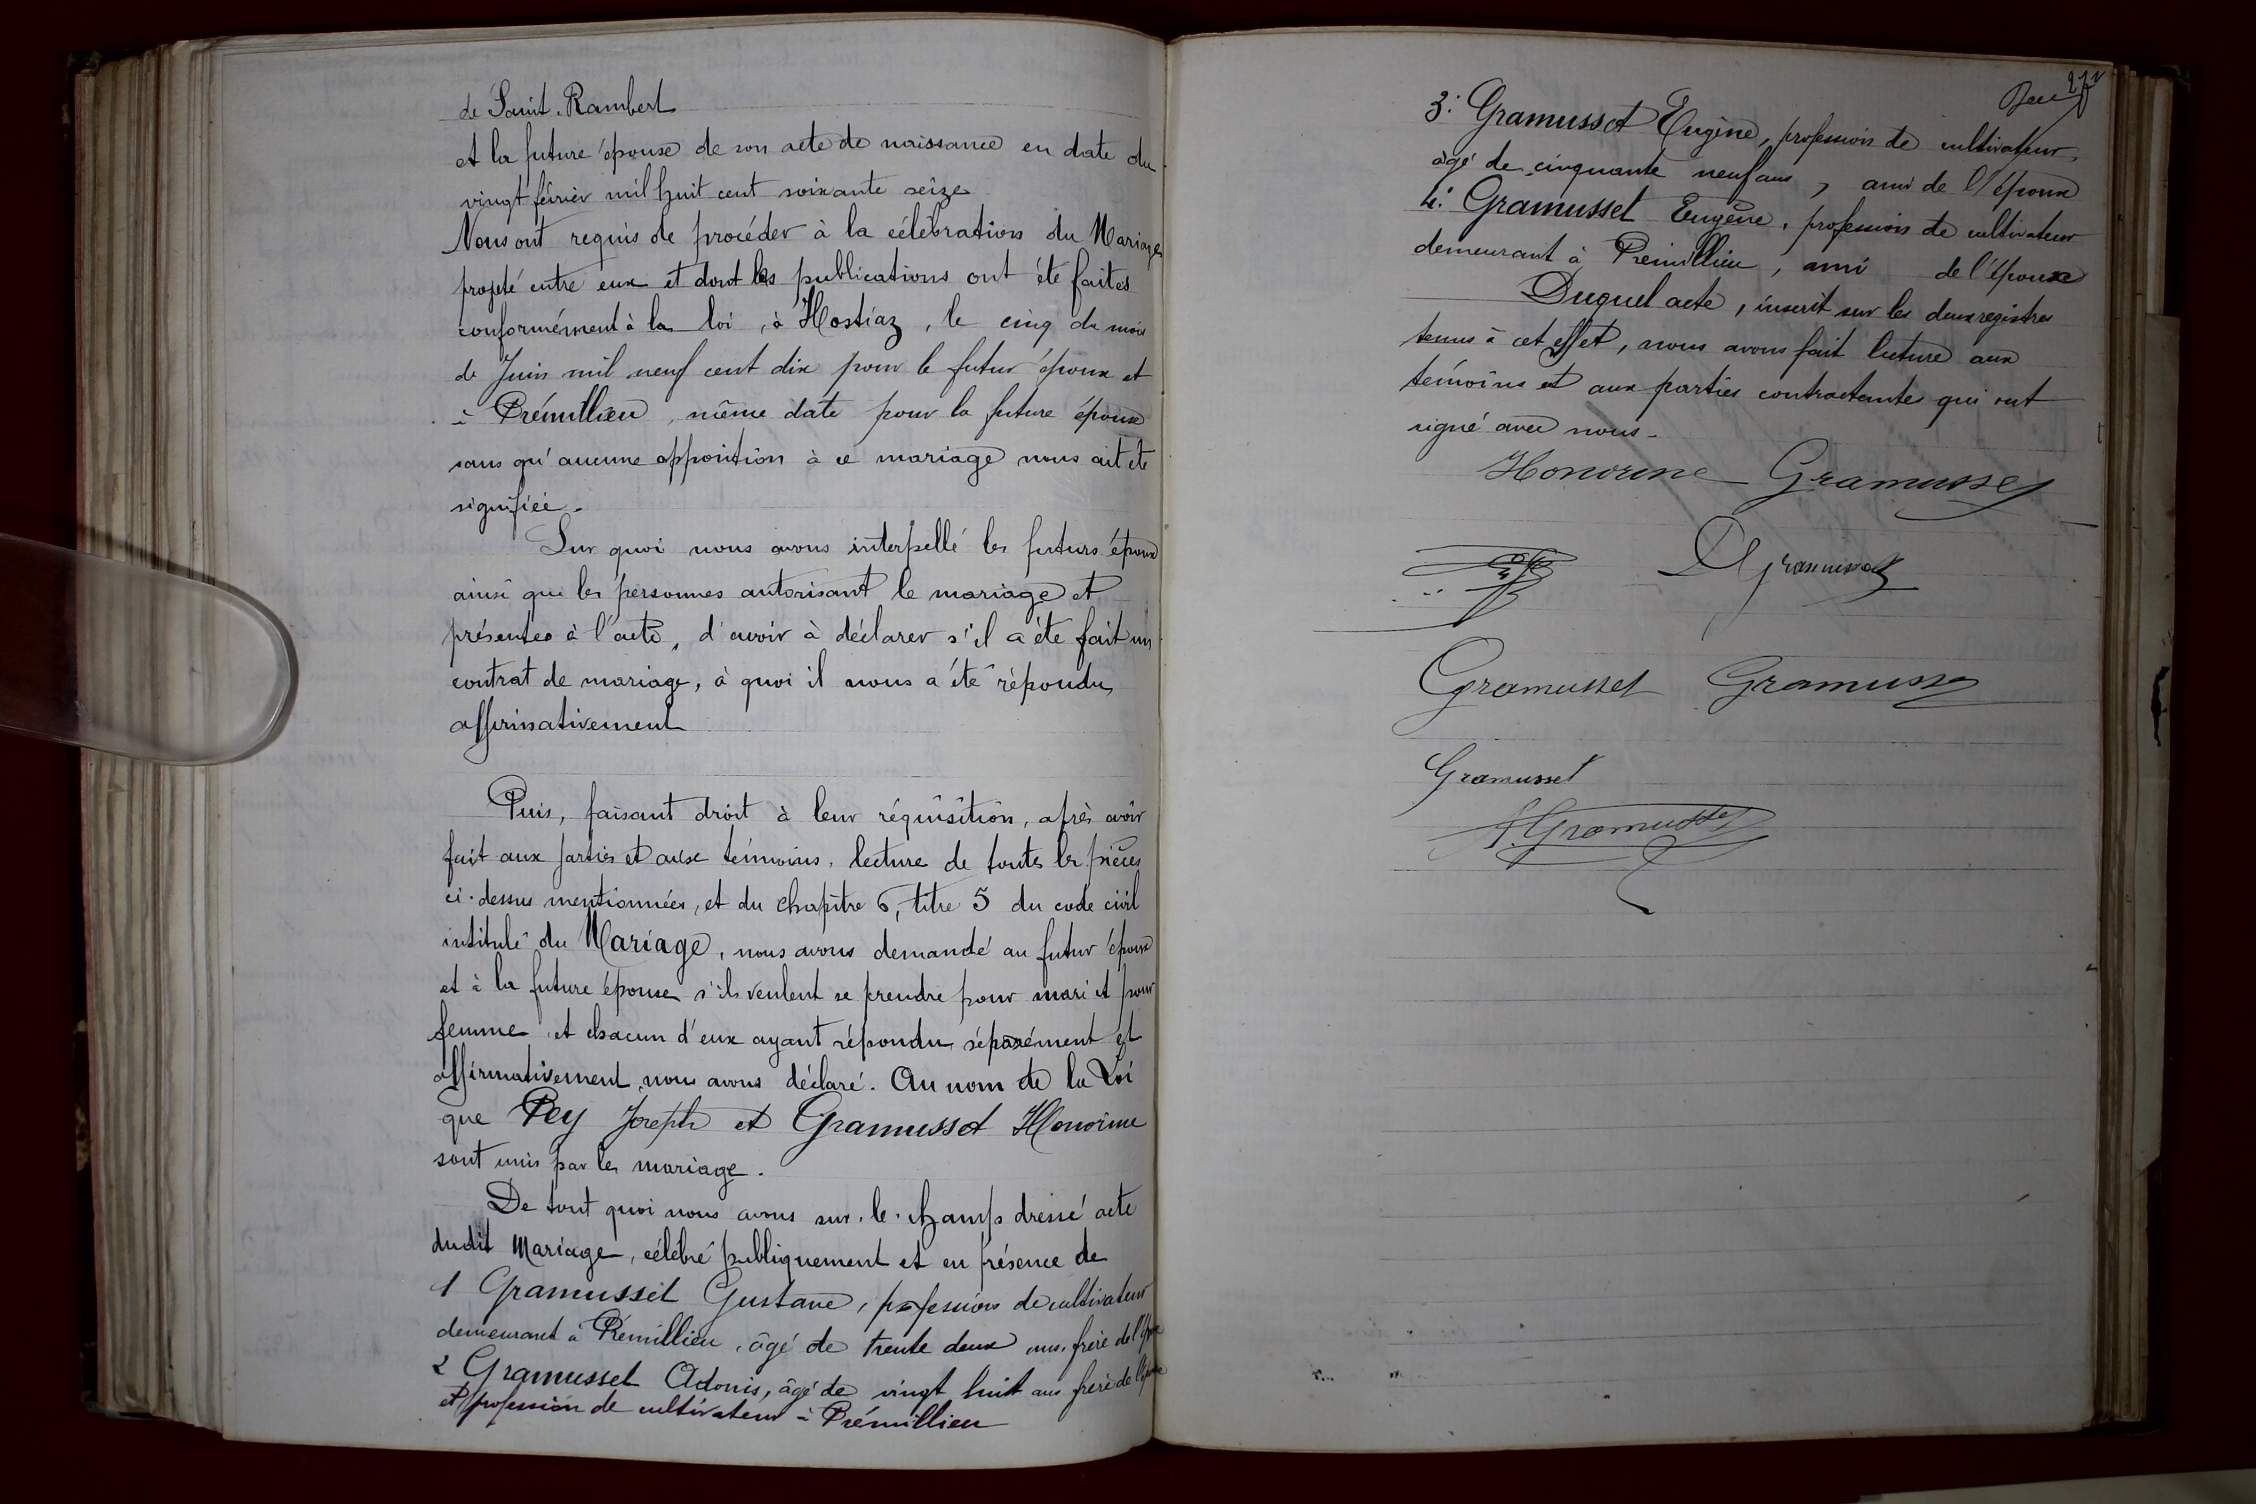 de Saint-Rambert
et la future épouse de son acte de naissance en date du
vingt février mil huit cent soixante seize
Nous ont requis de procéder à la célébration du Mariage
projeté entre eux et dont les publications ont été faites
conformément à la loi, à Hostiaz, le cinq du mois
de Juin mil neuf cent dix pour le futur époux et
à Prémillieu, même date pour la future épouse
sans qu'aucune opposition à ce mariage nous ait été
signifiée.
Sur quoi nous avons interpellé les futurs époux
ainsi que les personnes autorisant le mariage et
présentes à l'acte, d'avoir à déclarer s'il a été fait un
contrat de mariage, à quoi il nous a été répondu
affirmativement
Puis, faisant droit à leur réquisition, après avoir
fait aux parties et aux témoins, lecture de toutes les pièces
ci-dessus mentionnées, et du chapitre 6, titre 5 du code civil
intitulé du Mariage, nous avons demandé au futur époux
et à la future épouse s'ils veulent se prendre pour mari et pour
femme et chacun d'eux ayant répondu séparément et
affirmativement nous avons déclaré. Au nom de la Loi
que Pey Joseph et Gramusset Honorine
sont unis par le mariage.
De tout quoi nous avons sur-le-champ dressé acte
dudit Mariage, célébré publiquement et en présence de
1 Gramusset Gustave, profession de cultivateur
demeurant à Prémillieu, âgé de trente deux ans, frère de
2 Gramusset Adonis, âgé de vingt huit ans frère de
et profession de cultivateur à Prémillieu
272
3: Gramusset Eugène, profession de cultivateur,
âgé de cinquante neuf ans, ami de l'époux
4: Gramusset Eugène, profession de cultivateur
demeurant à Prémillieu, ami de l'épouse
Duquel acte, inscrit sur les deux registres
tenus à cet effet, nous avons fait lecture aux
témoins et aux parties contractantes qui ont
signé avec nous.
Honorine Gramusset
Gramusset
Gramusset Gramusset
Gramusset
A. Gramusset